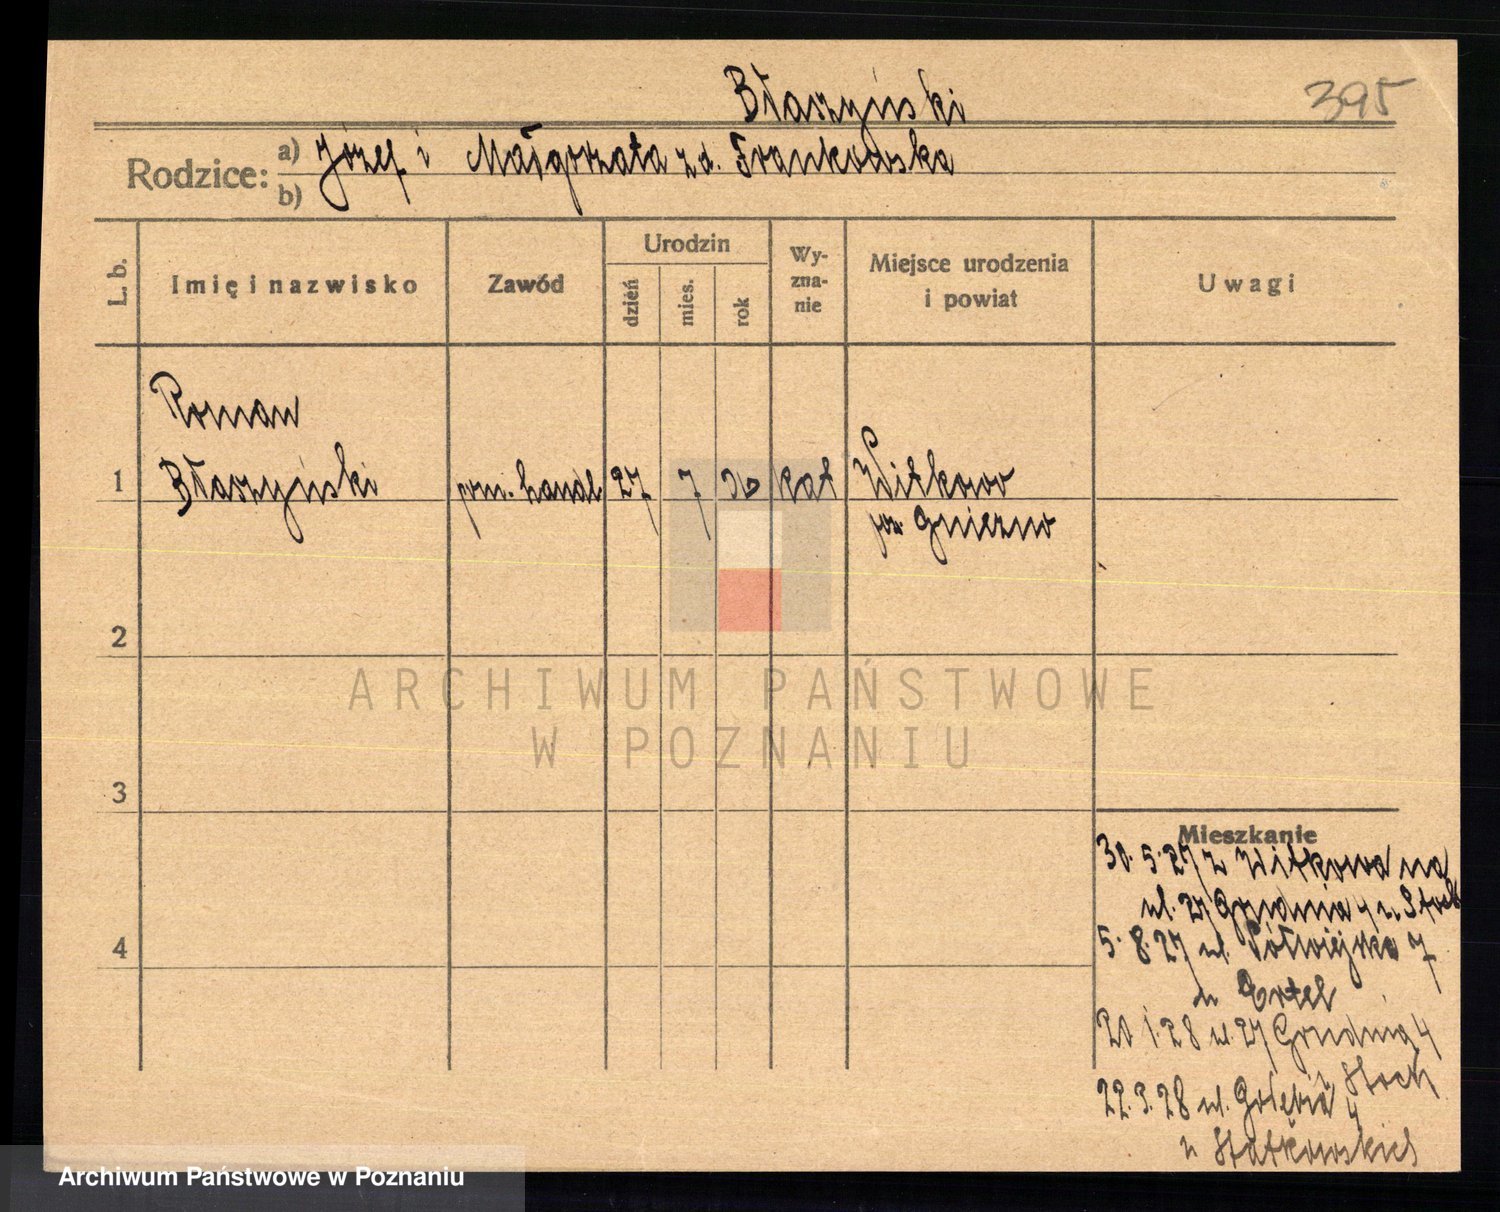 Błaszyński
395
Rodzice:
a) Józef i Małgorzata z d. Frankowska
b)
L. b.
Imię i nazwisko
Zawód
Urodzin
dzień
mies.
rok
Wy-
zna-
nie
Miejsce urodzenia
i powiat
Uwagi
Roman
1 Błaszyński pom. handl 27 7 kat Witkowo
pow Gniezno
2
3
4
ARCHIWUM PAŃSTWOWE
W POZNANIU
Mieszkanie
30.5.27 z Witkowa na
ul. 27 Grudnia 4 u
5.8.27 ul. Półwiejska 7
u Ertel
20 1.28 ul. 27 Grudnia 4
22.3.28 ul. Gołębia 4
u
Archiwum Państwowe w Poznaniu